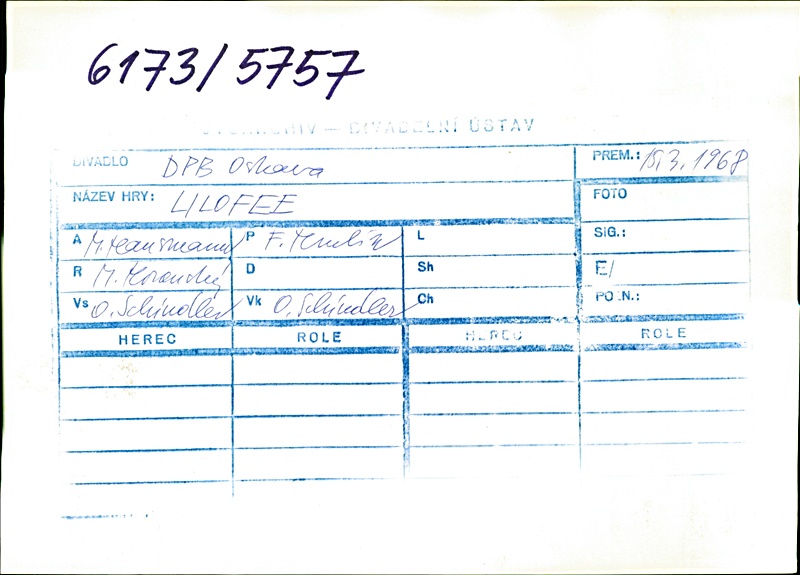 6173/5757
DIVADELNÍ ÚSTAV
DIVADLO DPB Ostrava PREM.: 15.3.1968
NÁZEV HRY: LILOFEE FOTO
A M. Hausmann P F. L SIG.:
R M. D Sh E/
Vs O. Schindler Vk O. Schindler Ch
HEREC ROLE HEREC ROLE